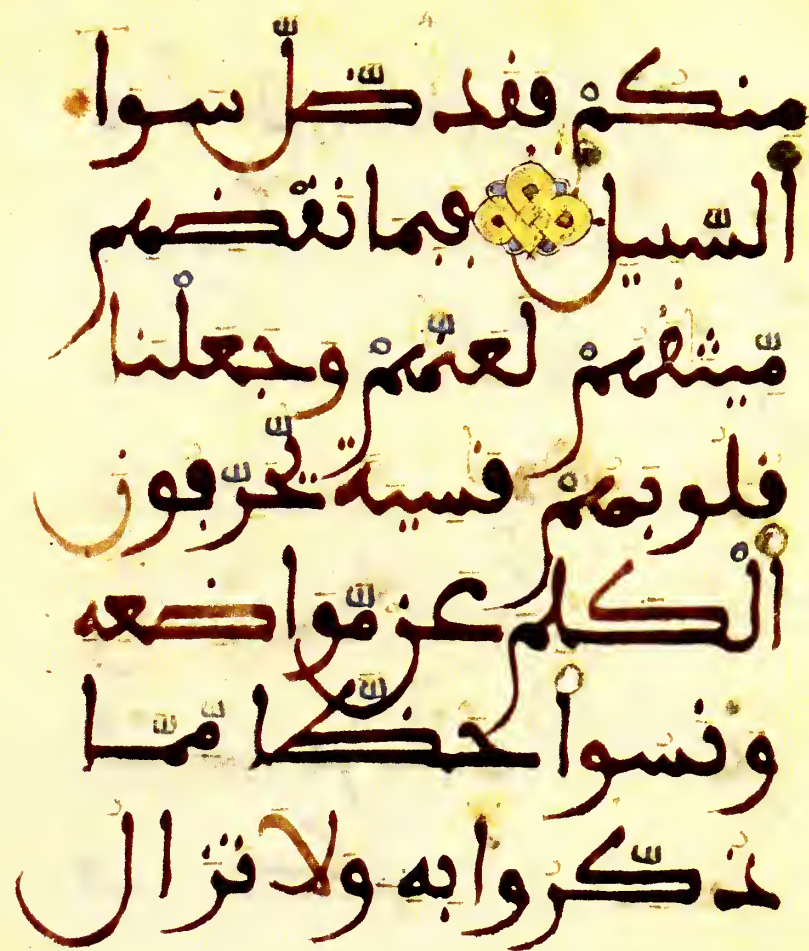 منكمْ فقد ضّلّ سوا
ألسّبيل فبما نقْضهم
مّيثقهمْ لعنّهمْ وجعلْنا
قلوبهمْ قسية يّحرّفون
ألْكلم عن مّواضعه
ونسوا حظّا مّمّا
ذكّروا به ولا تزال